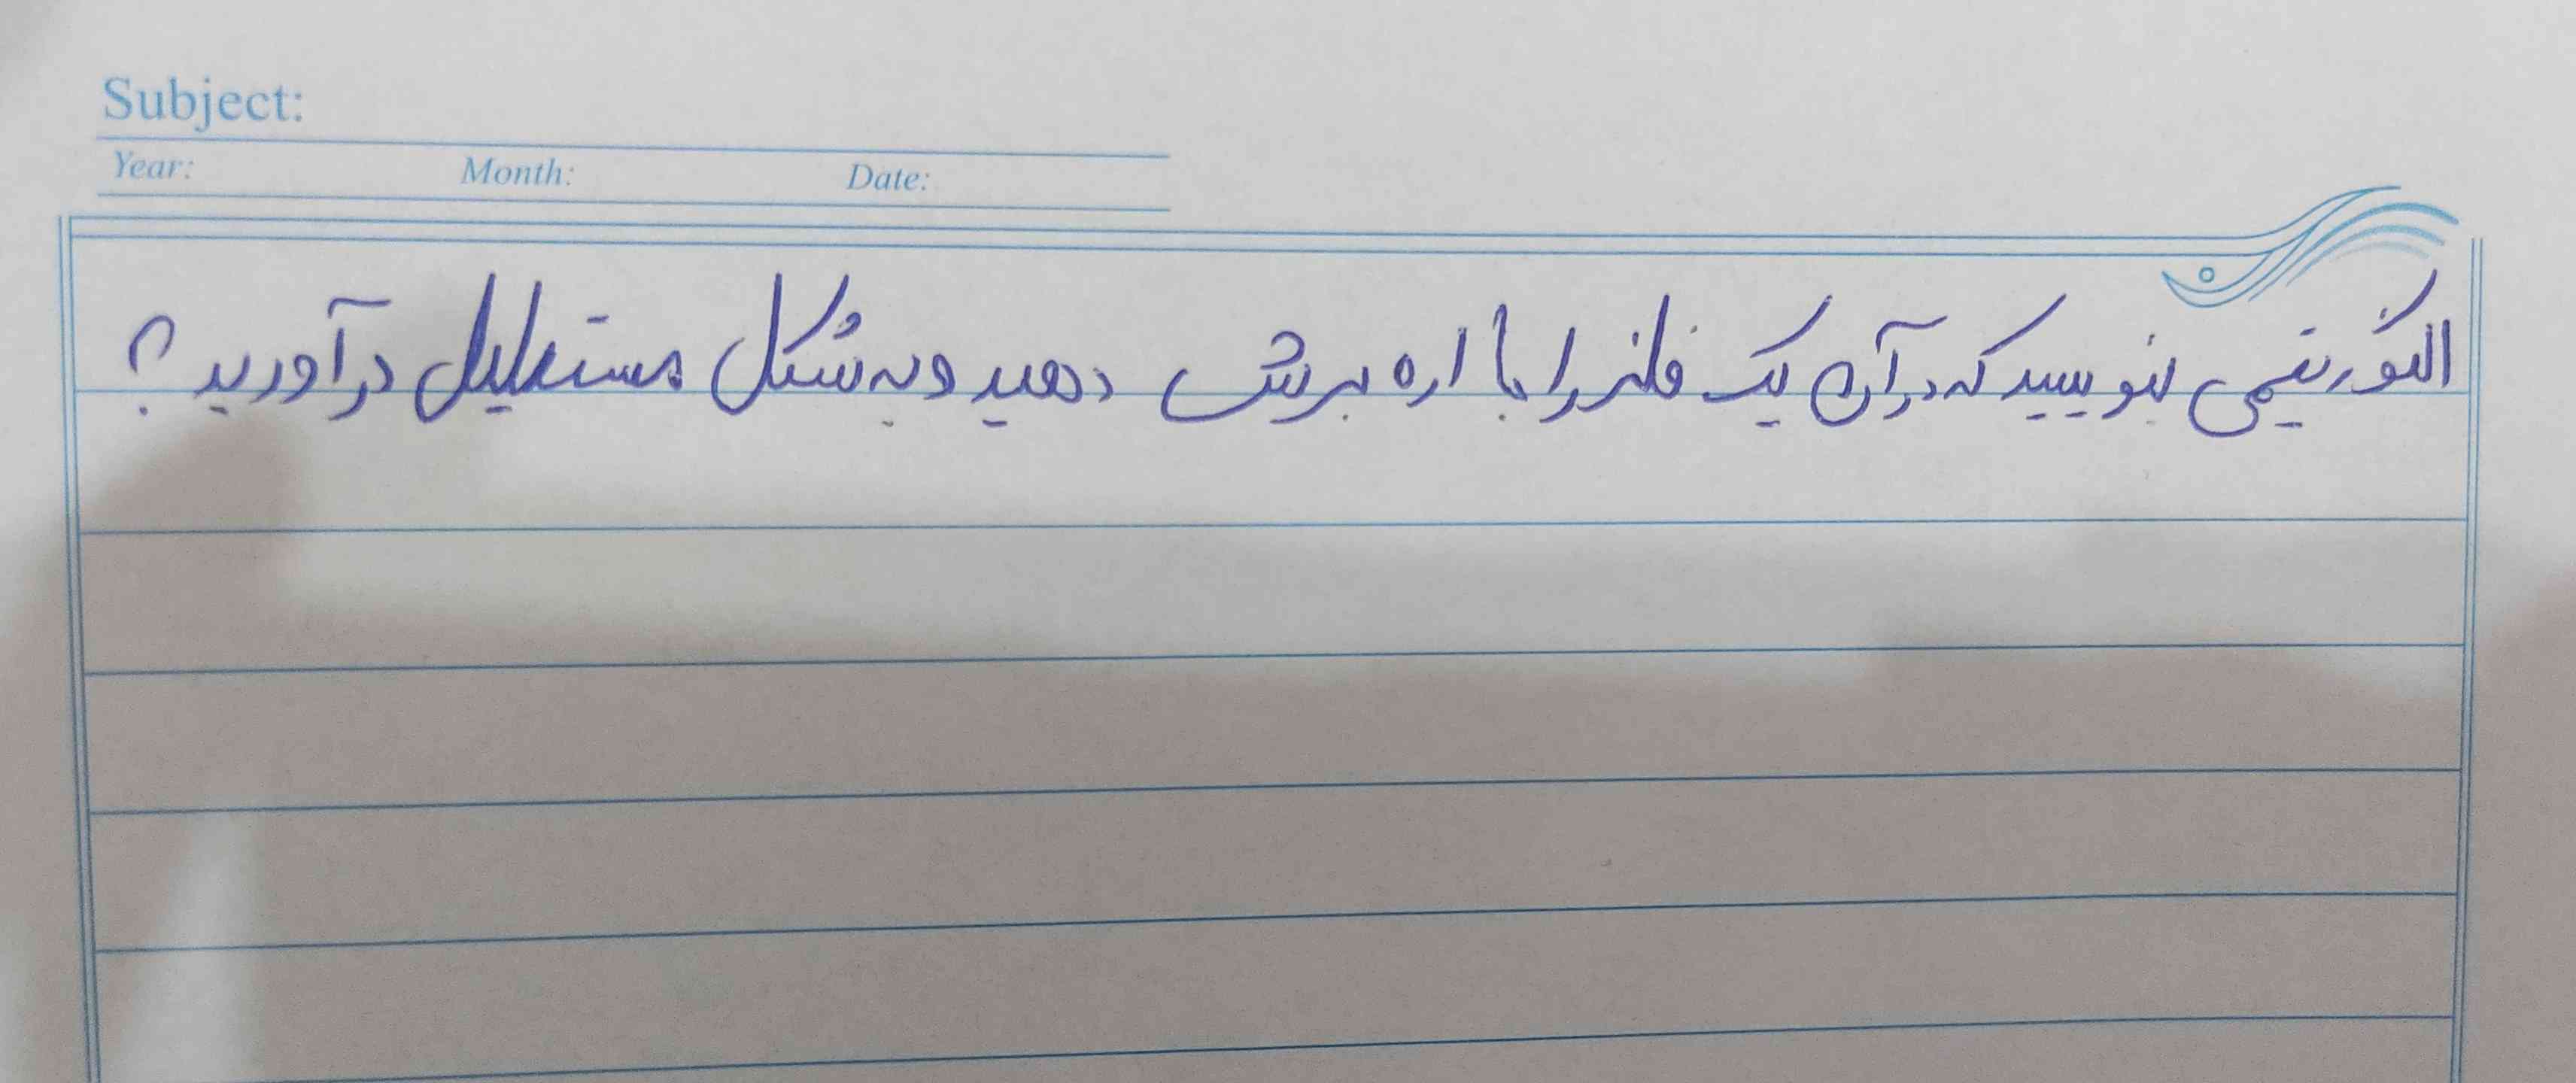 Subject:
Year: Month: Date:
الگوریتمی بنویسید که در آن یک فلز را با اره برش دهید و به شکل مستطیل در آورید؟